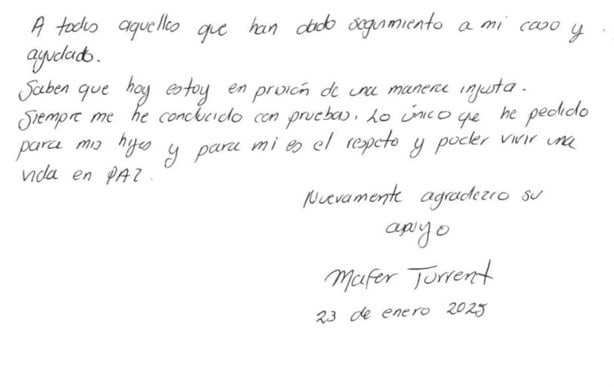 A todos aquellos que han dado seguimiento a mi caso y
ayudado.
Saben que hoy estoy en prisión de una manera injusta.
Siempre me he conducido con pruebas. Lo único qe he pedido
para mis hijos y para mi es el respeto y poder vivir una
vida en PAZ.
Nuevamente agradezco su
apoyo
Mafer Turrent
23 de enero 2025